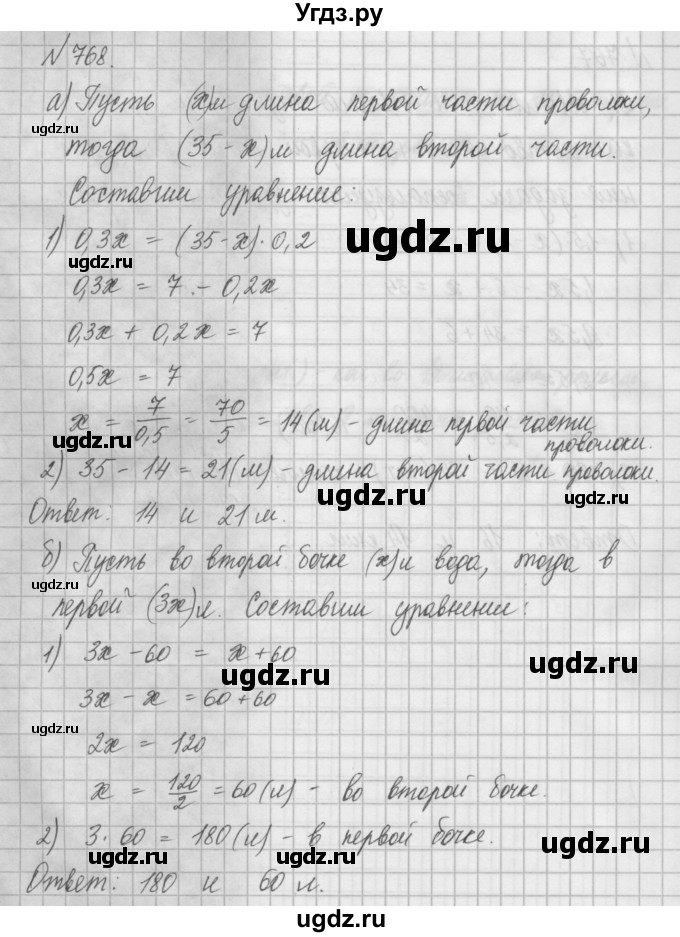 Угдз.ру
№ 768.
а) Пусть (x)м длина первой части проволоки,
ugdz.ru
тогда (35 - x)м длина второй части.
ugdz.ru
Составим уравнение:
1) 0,3x = (35-x)·0,2
ugdz.ru
ugdz.ru
0,3x = 7 - 0,2x
0,3x + 0,2x = 7
ugdz.ru
0,5x = 7
x = 7/0,5 = 70/5 = 14(м) - длина первой части
проволоки.
ugdz.ru
2) 35 - 14 = 21(м) - длина второй части проволоки.
ugdz.ru
ugdz.ru
Ответ: 14 и 21 м.
ugdz.ru
б) Пусть во второй бочке (x)л вода, тогда в
первой (3x)л. Составим уравнение:
ugdz.ru
1) 3x - 60 = x + 60
ugdz.ru
ugdz.ru
3x - x = 60 + 60
ugdz.ru
2x = 120
x = 120/2 = 60(л) - во второй бочке.
ugdz.ru
2) 3·60 = 180(л) - в первой бочке.
ugdz.ru
ugdz.ru
Ответ: 180 и 60 л.
ugdz.ru
ugdz.ru